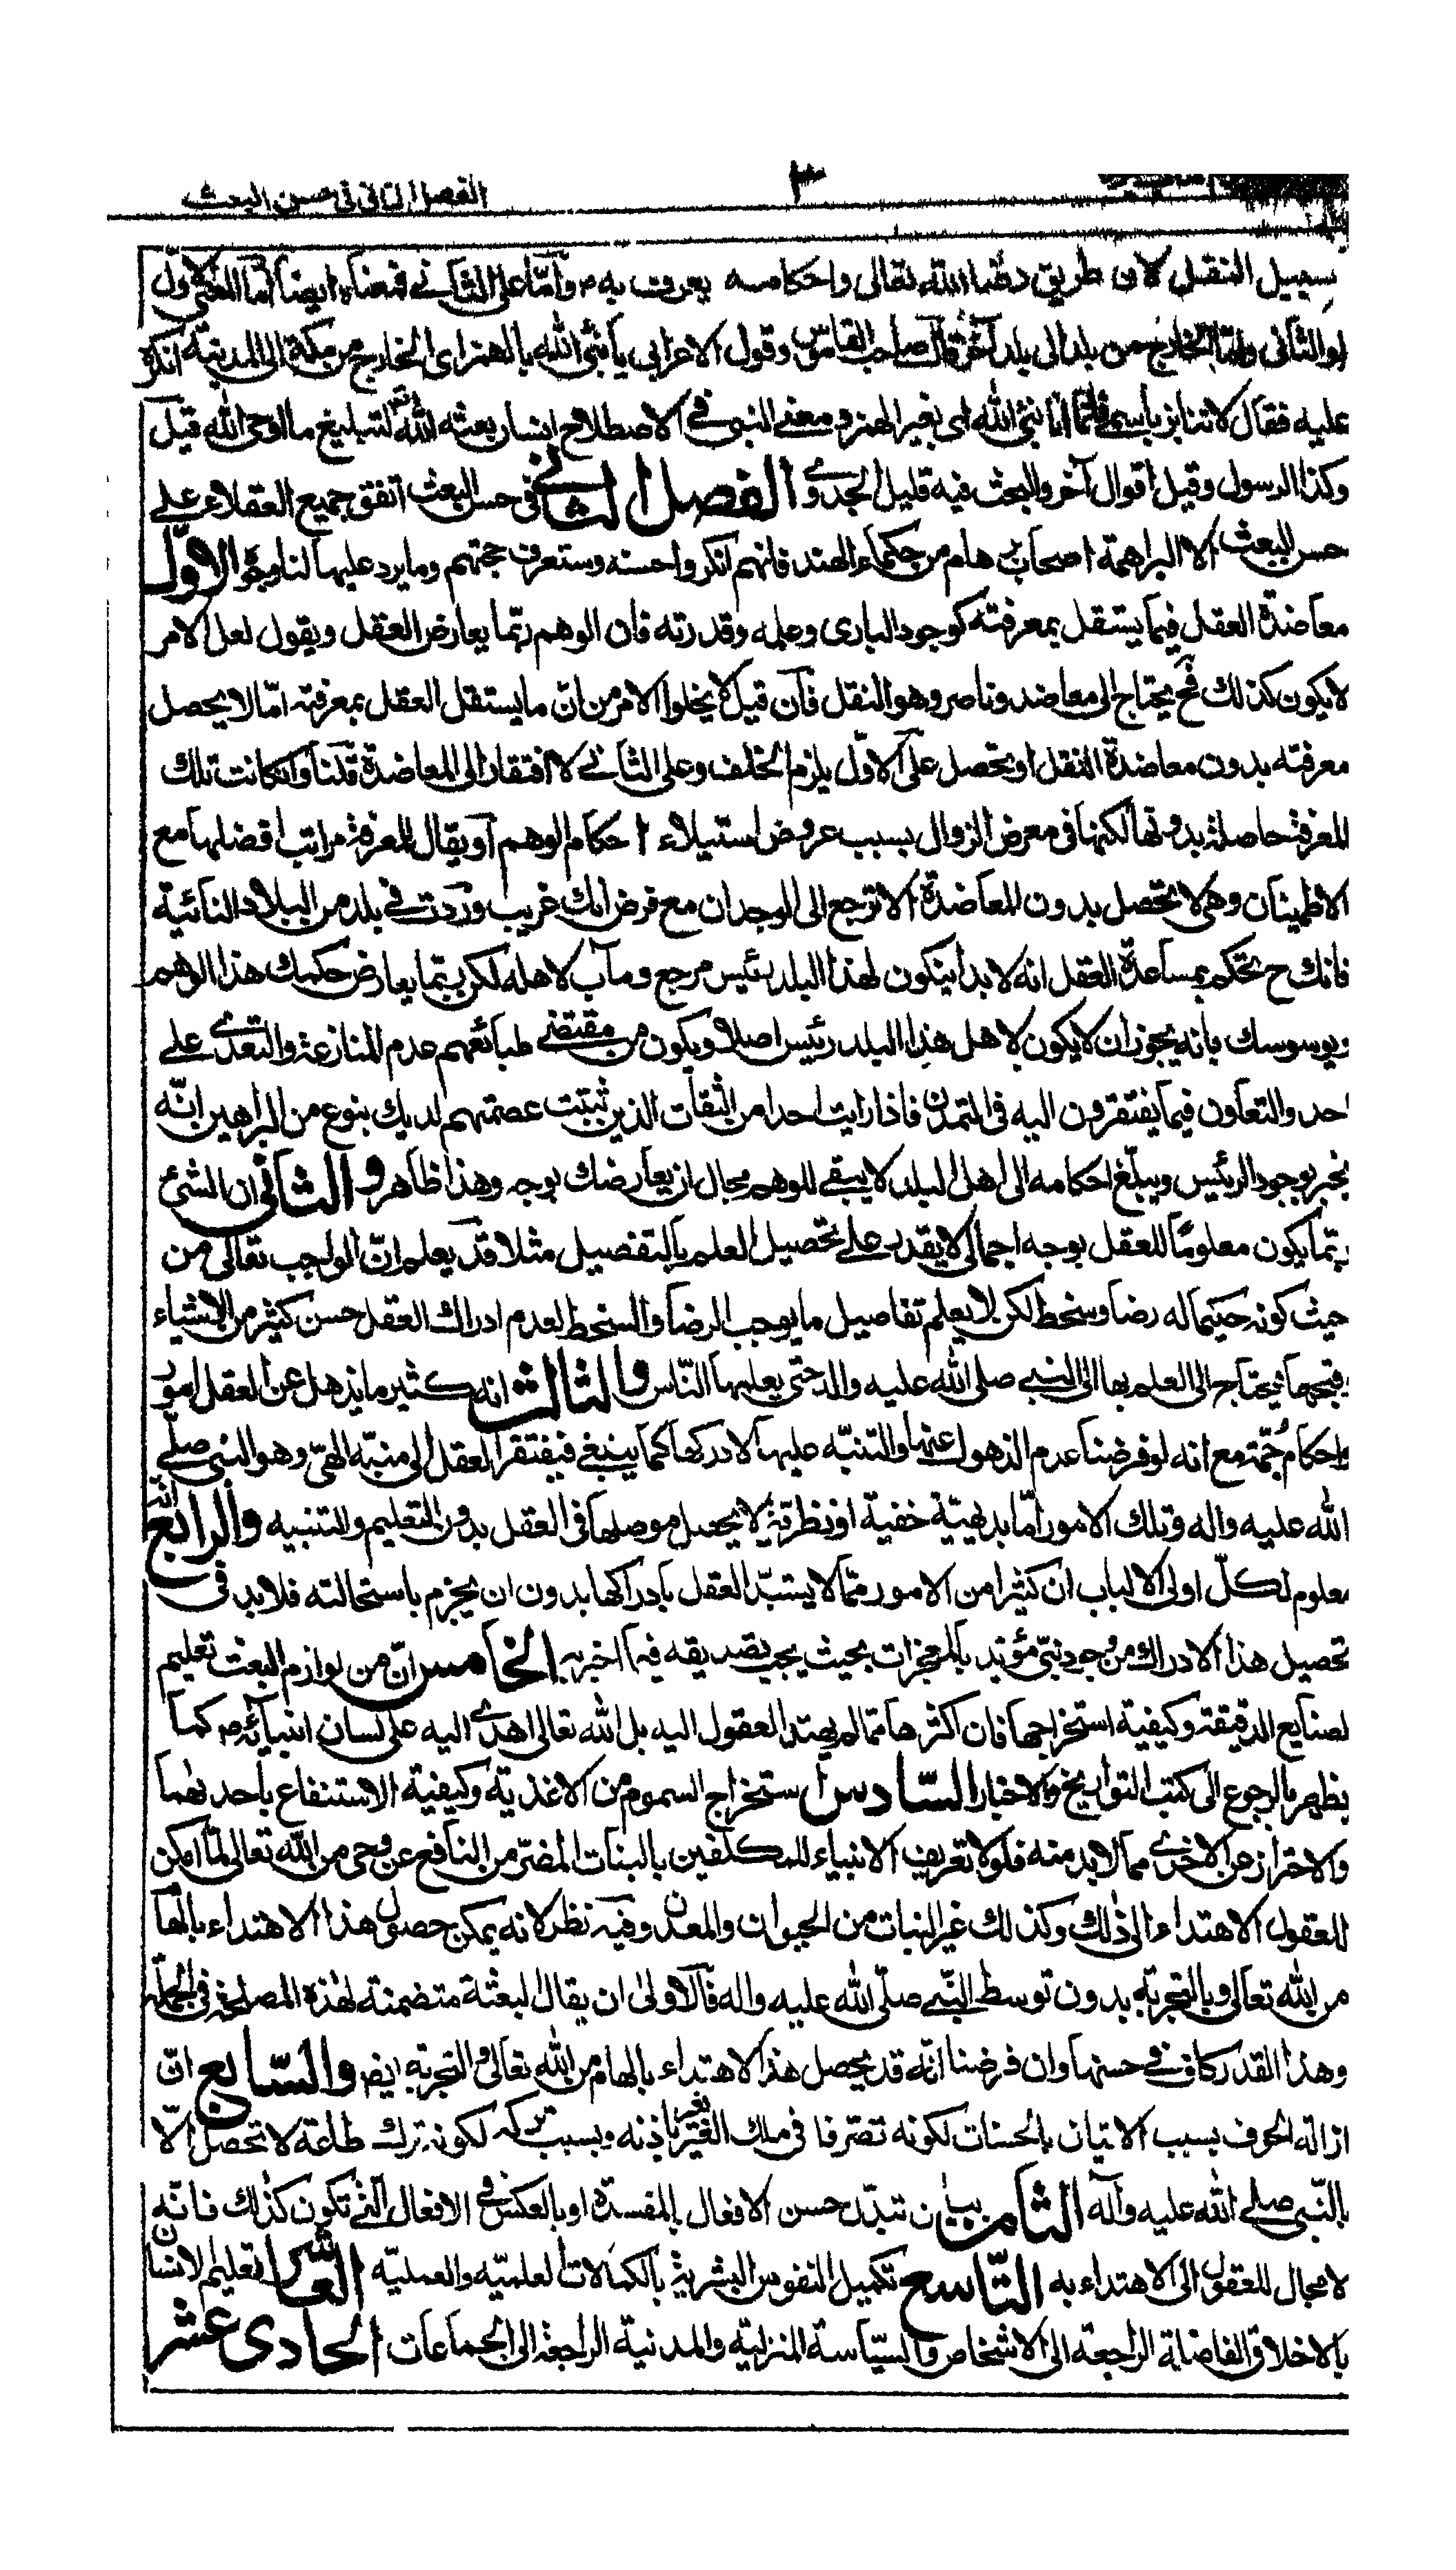 الفصل الثاني في حسن البعث
٣
سبيل النقل لان طريق دفها الله تعالى واحكامه يعرف به واما على الثاني فمعناه ايضا اما المعنى الاول
او الثاني واما الخارج من بلد الى بلد آخر قال صاحب القاموس وقول الاعرابي يا نبئ الله بالهمز اي الخارج من مكة الى المدينة انكره
عليه فقال لا تنابز باسمي فانما انا نبي الله اي بغير الهمز ومعنى النبي في الاصطلاح انسان بعثه الله لتبليغ ما اوحى الله قيل
وكذا الرسول وقيل اقوال آخر والبعث فيه قليل الجدوى الفصل الثاني في حسن البعث اتفق جميع العقلاء على
حسن البعث الا البراهمة اصحاب برهام من حكماء الهند فانهم انكروا حسنه وستعرف حجتهم وما يرد عليها لنا وجوه الاول
معاضدة العقل فيما يستقل بمعرفته كوجود الباري وعلمه وقدرته فان الوهم ربما يعارض العقل ويقول لعل الامر
لا يكون كذلك فح يحتاج الى معاضد وناصر وهو النقل فان قيل لا يخلوا الامر من ان ما يستقل العقل بمعرفته اما لا يحصل
معرفته بدون معاضدة النقل او تحصل على الاول يلزم الخلف وعلى الثاني لا افتقار الى المعاضدة قلنا وان كانت تلك
المعرفة حاصلة بدونها لكنها في معرض الزوال بسبب عروض استيلاء احكام الوهم او يقال للمعرفة مراتب افضلها مع
الاطمينان وهي لا تحصل بدون المعاضدة الا ترجع الى الوجدان مع فرض انك غريب وردت في بلد من البلاد النائية
فانك ح تحكم بمساعدة العقل انه لا بد ان يكون لهذا البلد رئيس مرجع ومآب لاهله لكن ربما يعارض حكمك هذا الوهم
ويوسوسك بانه يجوز ان لا يكون لاهل هذا البلد رئيس اصلا ويكون من مقتضى طبائعهم عدم المنازعة والتعدي على
احد والتعاون فيما يفتقرون اليه في التمدن فاذا رايت احدا من الثقات الذين ثبتت عصمتهم لديك بنوع من البراهين انه
يخبر بوجود الرئيس ويبلغ احكامه الى اهل البلد لا يبقى للوهم مجال ان يعارضك بوجه وهذا ظاهر والثاني ان الشئ
ربما يكون معلوما للعقل بوجه اجمالي لا يقدر على تحصيل العلم بالتفصيل مثلا قد يعلم ان الواجب تعالى من
حيث كونه حكيما له رضا وسخط لكن لا يعلم تفاصيل ما يوجب الرضا والسخط لعدم ادراك العقل حسن كثير من الاشياء
وقبحها فيحتاج الى العلم بها الى النبي صلى الله عليه واله حتى يعلمها الناس والثالث انه كثير ما يذهل عن العقل امور
واحكام جمة مع انه لو فرضنا عدم الذهول عنها والتنبه عليها لادركها كما ينبغي فيفتقر العقل الى منبه الهي وهو النبي صلى
الله عليه واله وتلك الامور اما بديهية خفية او نظرية لا يحصل موصلها في العقل بدون التعليم والتنبيه والرابع انه
معلوم لكل اولى الالباب ان كثيرا من الامور مما لا يستبد العقل بادراكها بدون ان يجزم باستحالته فلا بد في
تحصيل هذا الادراك من وجود نبي مؤيد بالمعجزات بحيث يجب تصديقه فيما اخبر به الخامس ان من لوازم البعث تعليم
الصنايع الدقيقة وكيفية استخراجها فان اكثرها مما لم يهتد العقول اليه بل الله تعالى اهدى اليه على لسان انبيائه كما
يظهر بالرجوع الى كتب التواريخ والاخبار السادس استخراج السموم من الاغذية وكيفية الاستنفاع باحدهما
والاحتراز عن الاخرى مما لا بد منه فلولا تعريف الانبياء للمكلفين بالنبات المضر من النافع عن وحي من الله تعالى لما امكن
للعقول الاهتداء الى ذلك وكذلك غير النبات من الحيوان والمعدن وفيه نظر لانه يمكن حصول هذا الاهتداء بالهام
من الله تعالى وبالتجربة بدون توسط النبي صلى الله عليه واله فالاولى ان يقال البعثة متضمنة لهذه المصلحة في الجملة
وهذا القدر كاف في حسنها وان فرضنا انه قد يحصل هذا الاهتداء بالهام من الله تعالى والتجربة ايض والسابع ان
ازالة الخوف بسبب الاتيان بالحسنات لكونه تصرفا في ملك الغير بغير اذنه وبسبب تركه لكونه ترك طاعة لا تحصل الا
بالنبي صلى الله عليه وآله الثامن بيان تبدل حسن الافعال بالمفسدة او بالعكس في الافعال التي تكون كذلك فانه
لا مجال للعقول الى الاهتداء به التاسع تكميل النفوس البشرية بالكمالات العلمية والعملية العاشر تعليم الانسان
بالاخلاق الفاضلة الراجعة الى الاشخاص والسياسة المنزلية والمدنية الراجعة الى الجماعات الحادي عشر